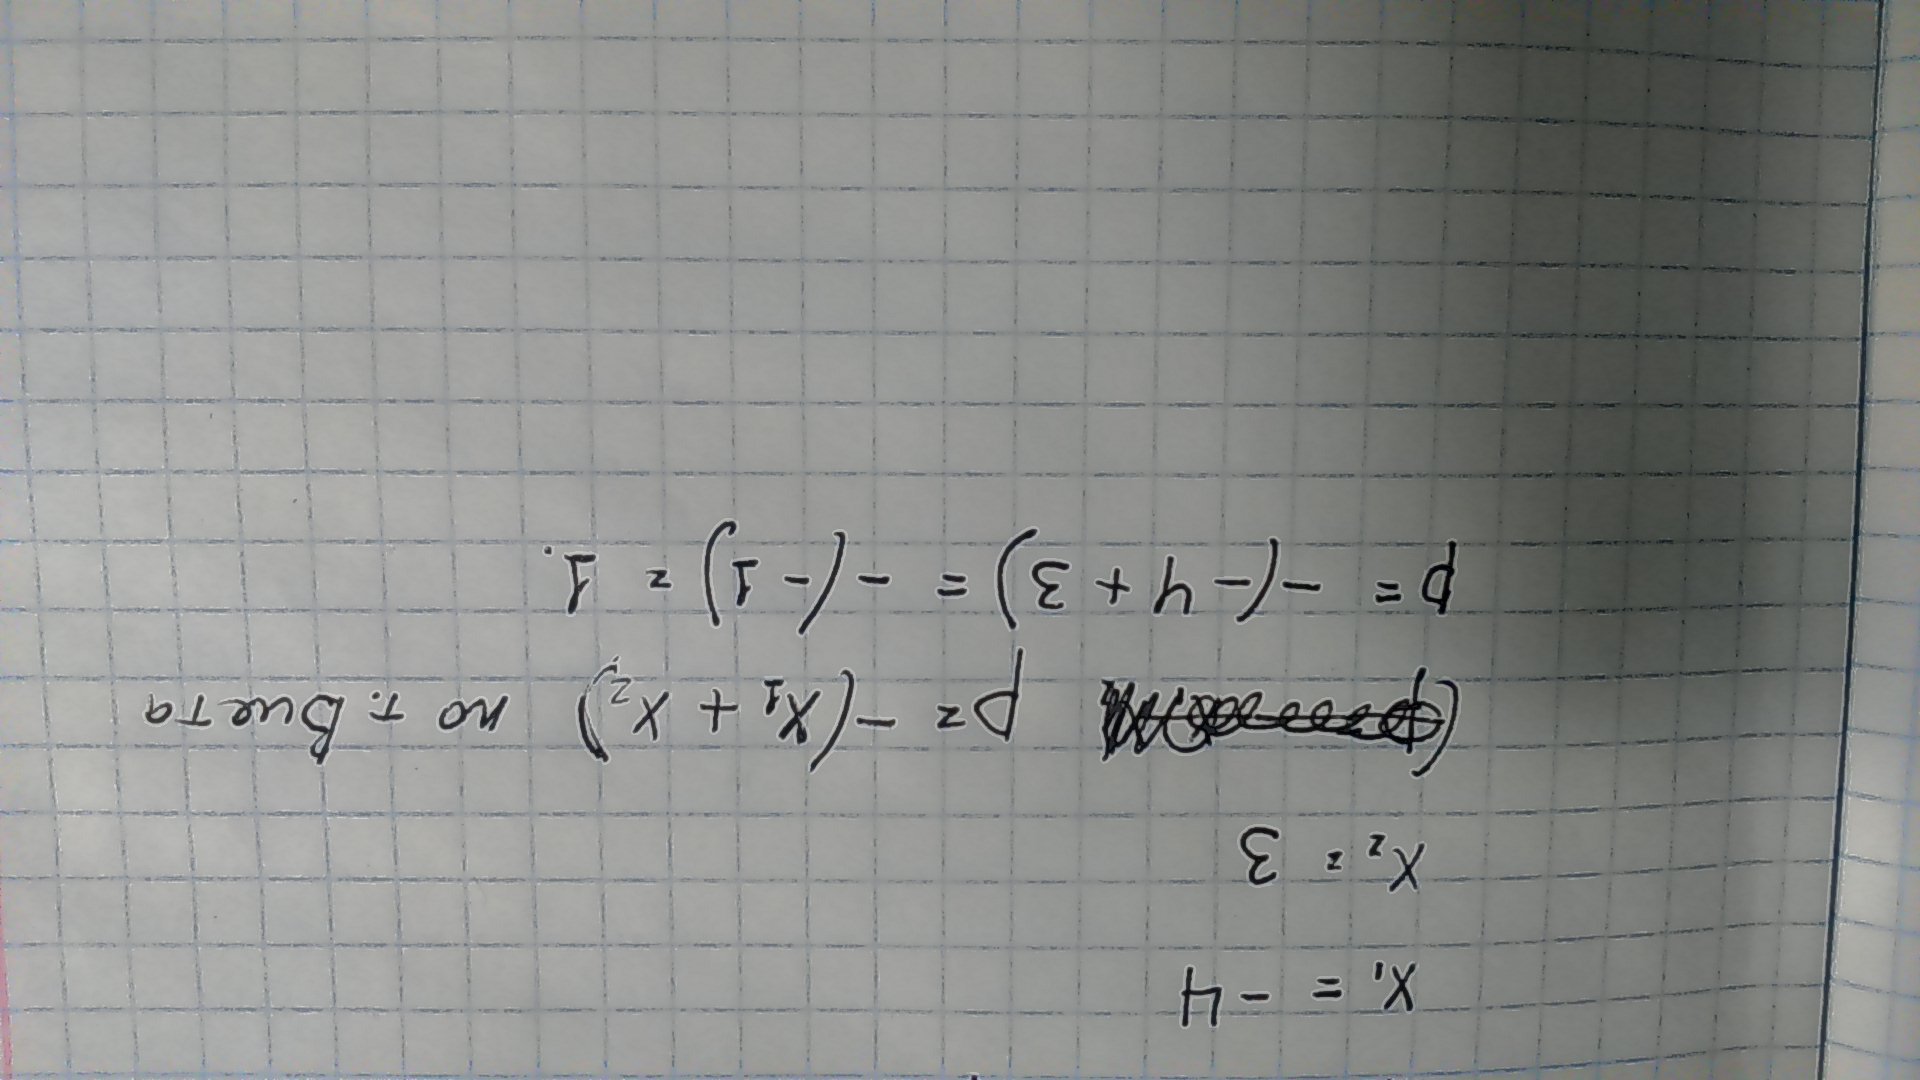 x₁ = -4
x₂ = 3
p = -(x₁ + x₂) по т. Виета
p = -(-4+3) = -(-1) = 1.